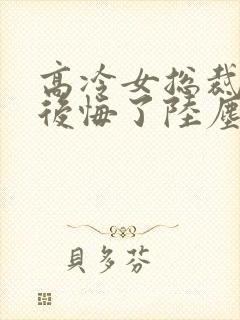 高冷女总裁
後悔了陸塵
貝多芬